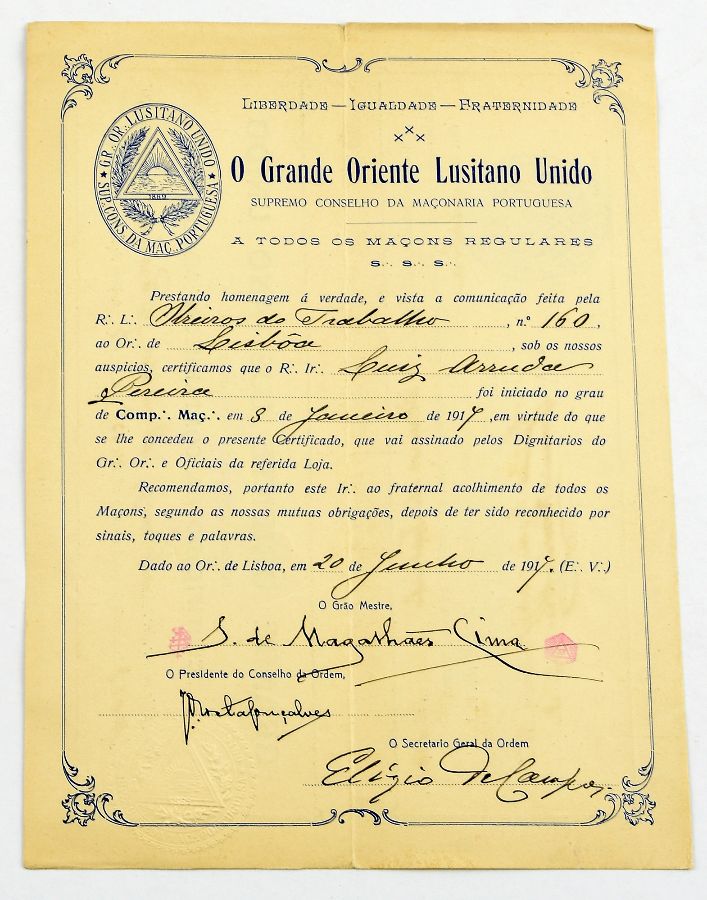 LIBERDADE — IGUALDADE — FRATERNIDADE
GR. OR. LUSITANO UNIDO
SUP. CONS. DA MAÇ. PORTUGUESA
1869
O Grande Oriente Lusitano Unido
SUPREMO CONSELHO DA MAÇONARIA PORTUGUESA
A TODOS OS MAÇONS REGULARES
S.·. S.·. S.·.
Prestando homenagem á verdade, e vista a comunicação feita pela
R.·. L.·. Obreiros do Trabalho, n.º 160,
ao Or.·. de Lisbôa, sob os nossos
auspicios, certificamos que o R.·. Ir.·. Luiz Arruda
Pereira foi iniciado no grau
de Comp.·. Maç.·. em 8 de Janeiro de 1917, em virtude do que
se lhe concedeu o presente Certificado, que vai assinado pelos Dignitarios do
Gr.·. Or.·. e Oficiais da referida Loja.
Recomendamos, portanto este Ir.·. ao fraternal acolhimento de todos os
Maçons, segundo as nossas mutuas obrigações, depois de ter sido reconhecido por
sinais, toques e palavras.
Dado ao Or.·. de Lisboa, em 20 de Junho de 1917. (E.·. V.·.)
O Grão Mestre,
S. de Magalhães Lima
O Presidente do Conselho da Ordem,
O Secretario Geral da Ordem
Elizio de Campos